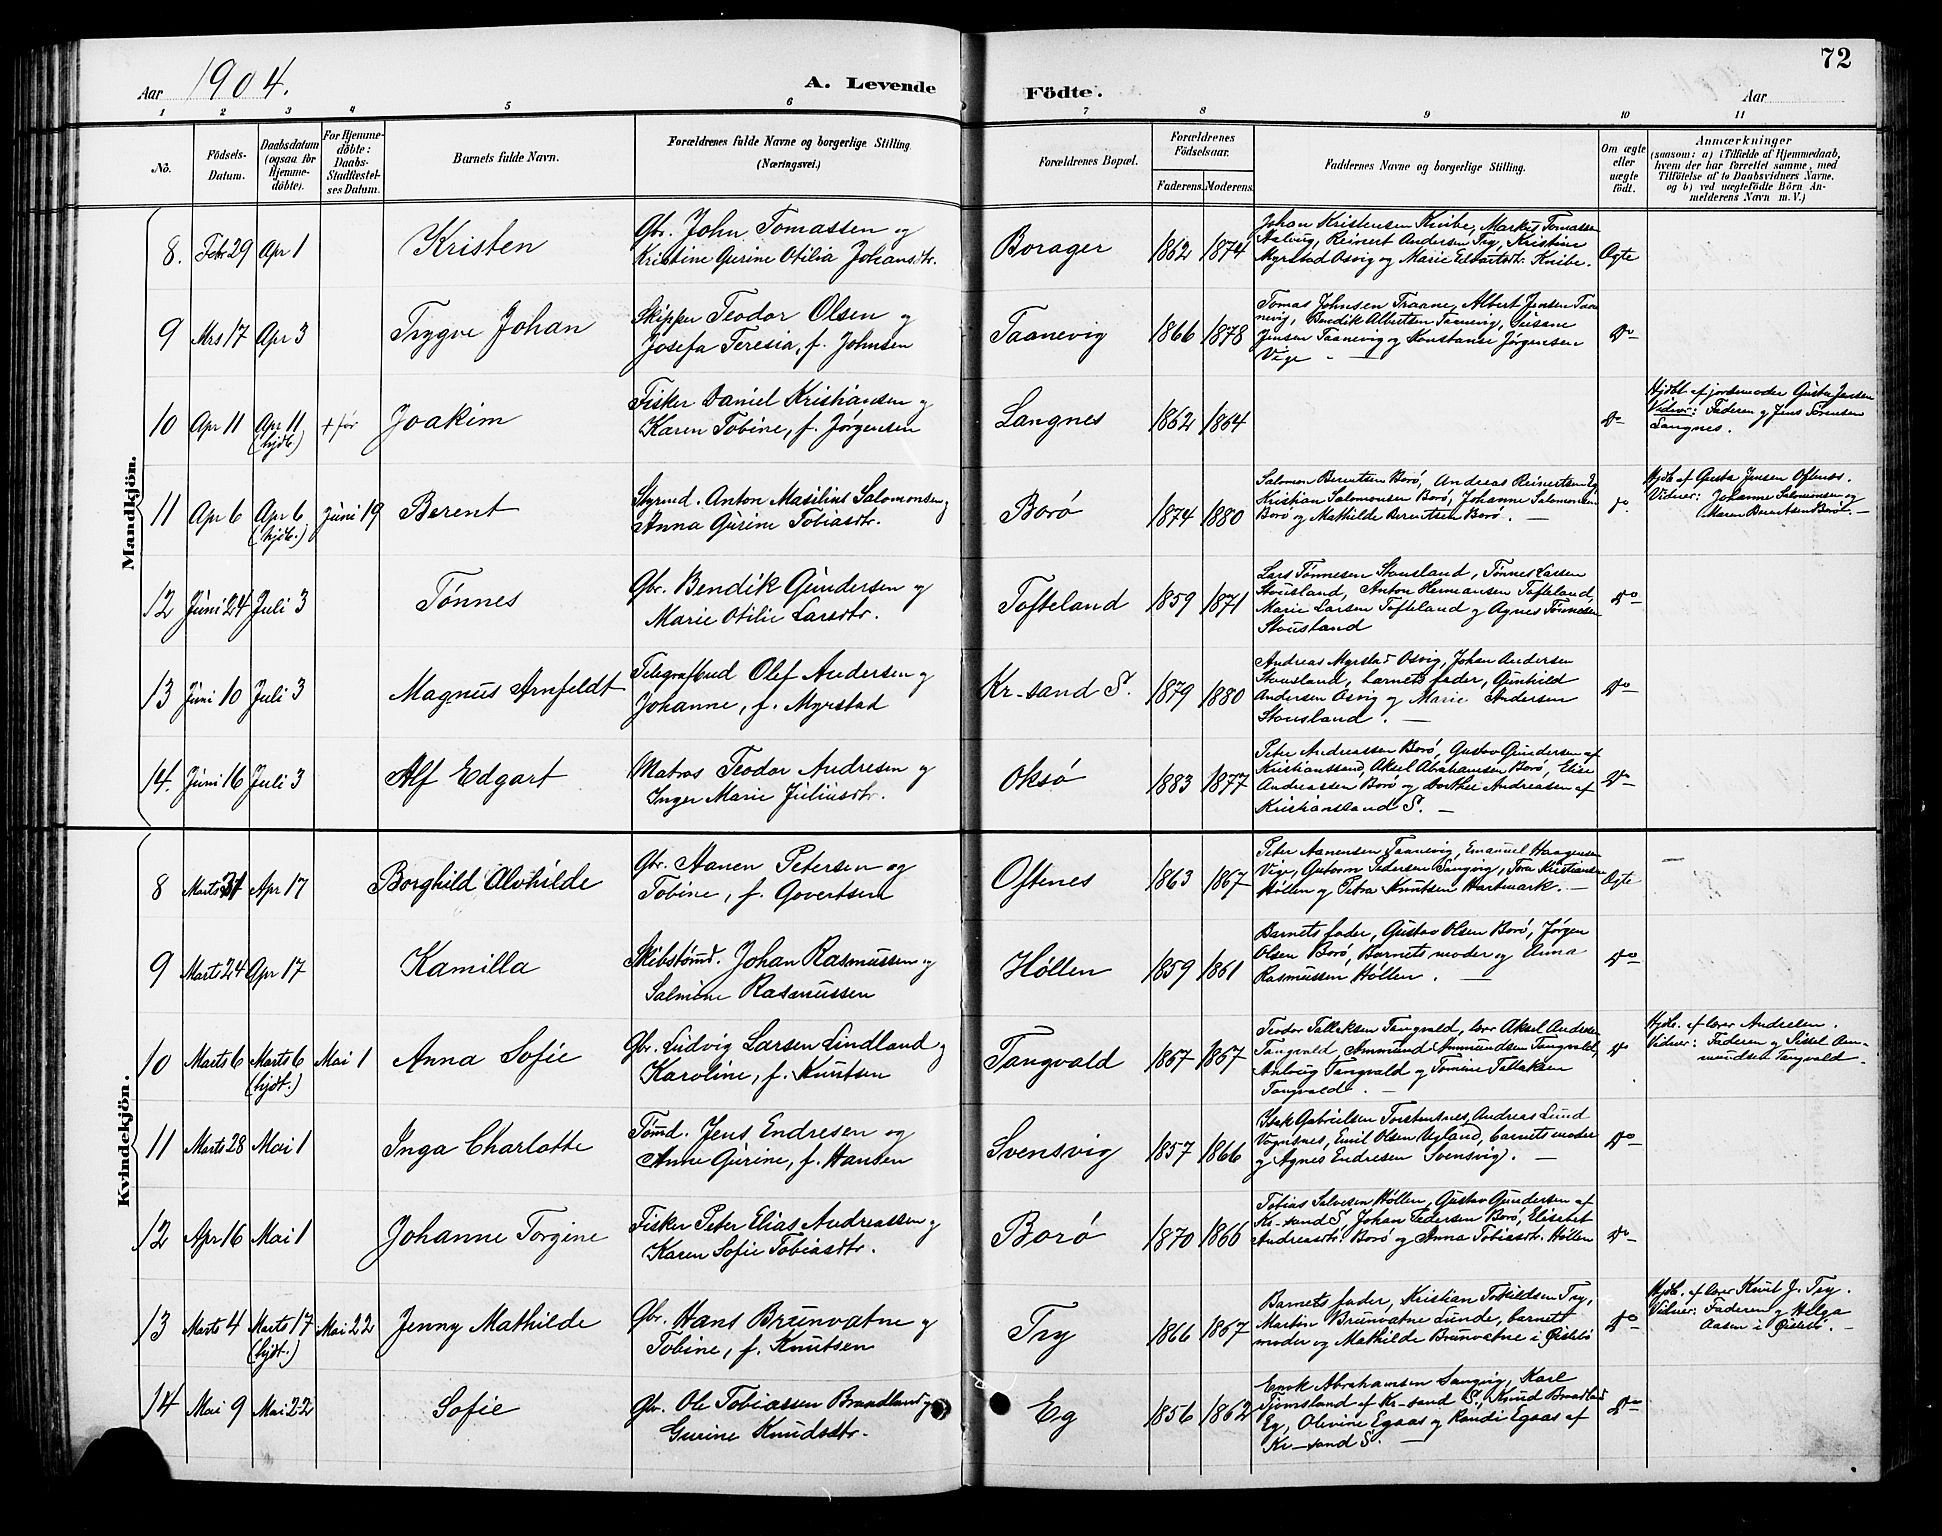 72
Aar 1904.
A. Levende Födte.
Aar
1 2 3 4 5 6 7 8 9 10 11
No.
Födsels-
Datum.
Daabsdatum
(ogsaa for
Hjemme-
döbte).
For Hjemme-
döbte:
Daabs-
Stadfæstel-
ses Datum.
Barnets fulde Navn.
Forældrenes fulde Navne og borgerlige Stilling.
(Næringsvei.)
Forældrenes Bopæl.
Forældrenes
Födselsaar.
Faderens. Moderens.
Faddernes Navne og borgerlige Stilling.
Om ægte
eller
uægte
födt.
Anmærkninger
(saasom: a) i Tilfælde af Hjemmedaab,
hvem der har forrettet samme, med
Tilföielse af to Daabsvidners Navne.
og b) ved uægtefödte Börn An-
melderens Navn m. V.)
Mandkjön.
8. Febr 29 Apr 1
Kristen
Gbr. John Tomassen og
Kristine Gurine Otilia Johansdtr.
Borager
1862 1874
Johan Kristensen Knibe, Markus Tomassen
Aalvig, Reinert Andersen Try, Kristine
Myrstad Osvig og Marie Edvartsdtr. Knibe.
Ægte
9 Mrs 17 Apr 3
Trygve Johan
Skipper Teodor Olsen og
Josefa Teresia, f. Johnsen
Taanevig
1866 1878
Tomas Johnsen Traane, Albert Jensen Taa
nevig, Bendik Albertsen Taanevig,
Jensen Taanevig og Konstanse Jørgensen
Vige —
Do
10 Apr 11 Apr 11
(hjdb.)
+ før
Joakim
Fisker Daniel Kristiansen og
Karen Tobine, f. Jørgensen
Langnes
1862 1864
Do
Hjdbt. af jordemoder Gusta Jensen
Vidner: Faderen og Jens Sørensen
Langnes.
11 Apr 6 Apr 6
(hjdb.)
Juni 19
Berent
Styrmd. Anton Masilius Salomonsen og
Anna Gurine Tobiasdtr.
Borø
1874 1880
Salomon Berentsen Borø, Andreas Reinertsen Eg
Kristian Salomonsen Borø, Johanne Salomonsen
Borø og Mathilde Berentsen Borø. —
Do
Hjdb. af Gusta Jensen Oftenes.
Vidner: Johanne Salomonsen og
Maren Berentsen Borø. —
12 Juni 24 Juli 3
Tønnes
Gbr. Bendik Gundersen og
Marie Otilie Larsdtr.
Tofteland
1859 1871
Lars Tønnesen Stousland, Tønnes Lassen
Stousland, Anton Hermansen Tofteland,
Marie Larsen Tofteland og Agnes Tønnesen
Stousland
Do
13 Juni 10 Juli 3
Magnus Arnfeldt
Telegrafbud Olef Andersen og
Johanne, f. Myrstad
Kr-sand S.
1879 1880
Andreas Myrstad Osvig, Johan Andersen
Stousland, barnets fader, Gunhild
Andersen Osvig og Marie Andersen
Stousland. —
Do
14. Juni 16 Juli 3
Alf Edgart
Matros Teodor Andresen og
Inger Marie Juliusdtr.
Oksø
1883 1877
Peter Andreassen Borø, Gustav Gundersen af
Kristianssand, Aksel Abrahamsen Borø, Elise
Andreassen Borø og Dorthe Andreasen af
Kristianssand S. —
Do
Kvindekjön.
8 Marts 31 Apr 17
Borghild Alvhilde
Gbr. Aanen Petersen og
Tobine, f. Govertsen
Oftenes
1863 1867
Peter Aanensen Taanevig, Emanuel Haagensen
Vige, Gutorm Pedersen Sangvig, Tora Kristiansen
Høllen og Petra Knutsen Hartmark. —
Ægte
—
9 Marts 24 Apr 17
Kamilla
Skibstømd. Johan Rasmussen og
Salmine Rasmussen
Høllen
1859 1861
Barnets fader, Gustav Olsen Borø, Jørgen
Olsen Borø, Barnets moder og Anna
Rasmussen Høllen. —
Do
10 Marts 6 Marts 6
(hjdt.)
Mai 1
Anna Sofie
Gbr. Ludvig Larsen Lindland og
Karoline, f. Knutsen
Tangvald
1867 1867
Teodor Tallaksen Tangvald, lærer Aksel Andersen
Tangvald, Ammund Ammundsen Tangvald,
Anbrug Tangvald og Tomine Tallaksen
Tangvald. —
Do
Hjdb. af lærer Andersen.
Vidner: Faderen og Sissel Am-
mundsen Tangvald —
11 Marts 28 Mai 1
Inga Charlotte
Tømd. Jens Endresen og
Anne Gurine, f. Hansen
Svensvig
1857 1866
Isak Gabrielsen Torstensnes, Andreas Lund
Vognsnes, Emil Olsen Ugland, barnets moder
og Agnes Endresen Svensvig. —
Do
12 Apr 16 Mai 1
Johanne Torgine
Fisker Peter Elias Andreassen og
Karen Sofie Tobiasdtr.
Borø
1870 1866
Tobias Salvesen Høllen, Gustav Gundersen af
Kr-sand S, Johan Pedersen Borø, Elisabet
Andreasdtr. Borø og Anna Tobiasdtr. Høllen
Do
13 Marts 4 Marts 17
(hjdt.)
Mai 22
Jenny Mathilde
Gbr. Hans Brunvatne og
Tobine, f. Knutsen
Try
1866 1867
Barnets fader, Kristian Torkildsen Try,
Martin Brunvatne Lunde, barnets
moder og Mathilde Brunvatne i Øislebø
Do
Hjdb. af lærer Knut J. Try.
Vidner: Faderen og Helga
Aasen i Øislebø. —
14 Mai 9 Mai 22
Sofie
Gbr. Ole Tobiassen Brandland og
Gurine Knudsdtr.
Eg
1856 1862
Enok Abrahamsen Sangvig, Karl
Tjomsland af Kr-sand S., Knud Brandland
Eg, Olevine Egaas og Randi Egaas af
Kr-sand S. —
Do